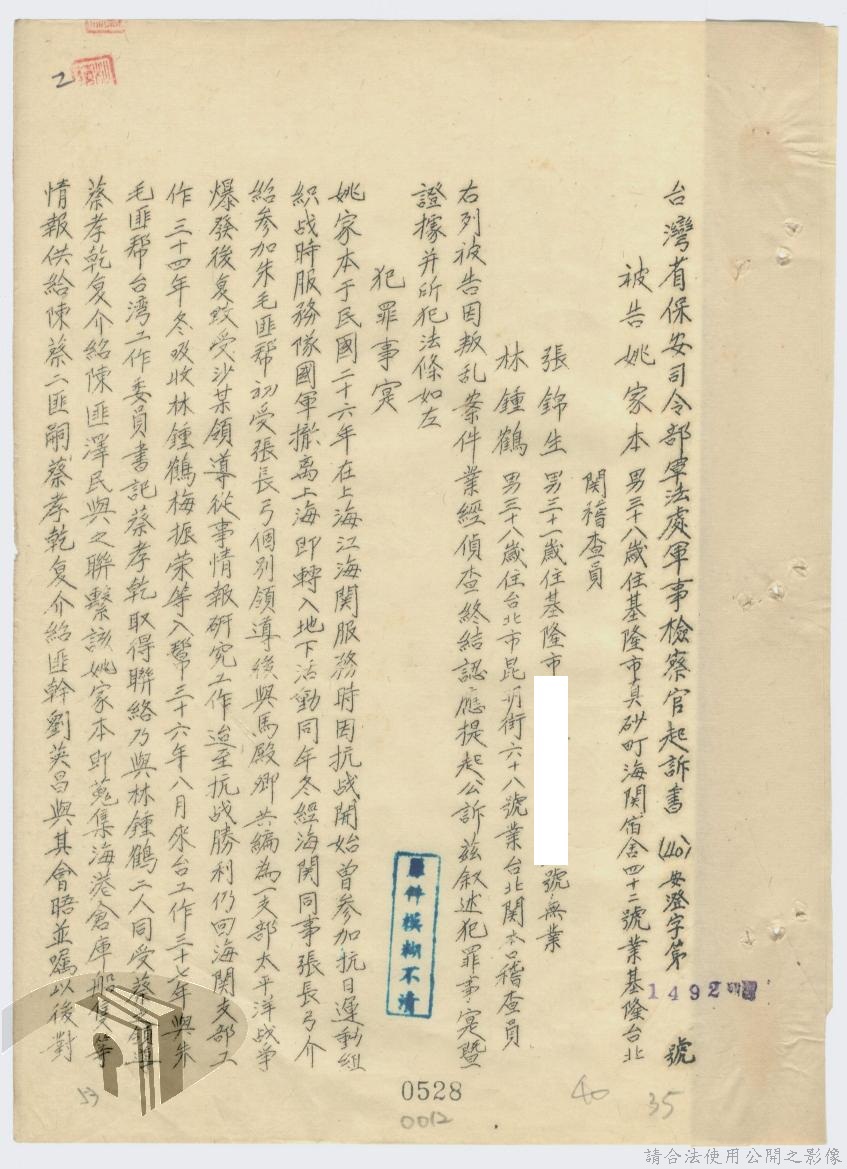 台灣省保安司令部軍法處軍事檢察官起訴書 (40)安澄字第1492號
被告姚家本 男三十八歲住基隆市真砂町海関宿舍四十二號業基隆台北
関稽查員
張錦生 男三十一歲住基隆市 號無業
林鍾鶴 男三十八歲住台北市昆明街六十八號業台北関本口稽查員
右列被告因叛乱案件業經偵查終結認應提起公訴茲叙述犯罪事实暨
證據并所犯法條如左
犯罪事实
姚家本于民國二十六年在上海江海関服務時因抗战開始曾參加抗日運動組
織战時服務隊國軍撤离上海即轉入地下活動同年冬經海関同事張長弓介
紹參加朱毛匪幫初受張長弓個別領導後與馬殿卿共編為一支部太平洋战争
爆發後复改受沙某領導從事情報研究工作迨至抗战勝利仍回海関支部工
作三十四年冬吸收林鍾鶴梅振荣等入幫三十六年八月來台工作三十七年與朱
毛匪幫台湾工作委員書記蔡孝乾取得聯絡乃與林鍾鶴二人同受蔡之領導
蔡孝乾复介紹陳匪澤民與之聯繫該姚家本即蒐集海港倉庫船隻等
情報供給陳蔡二匪嗣蔡孝乾复介紹匪幹劉英昌與其會晤並嘱以後對
2
原件模糊不清
0528
0012
53
40
35
請合法使用公開之影像